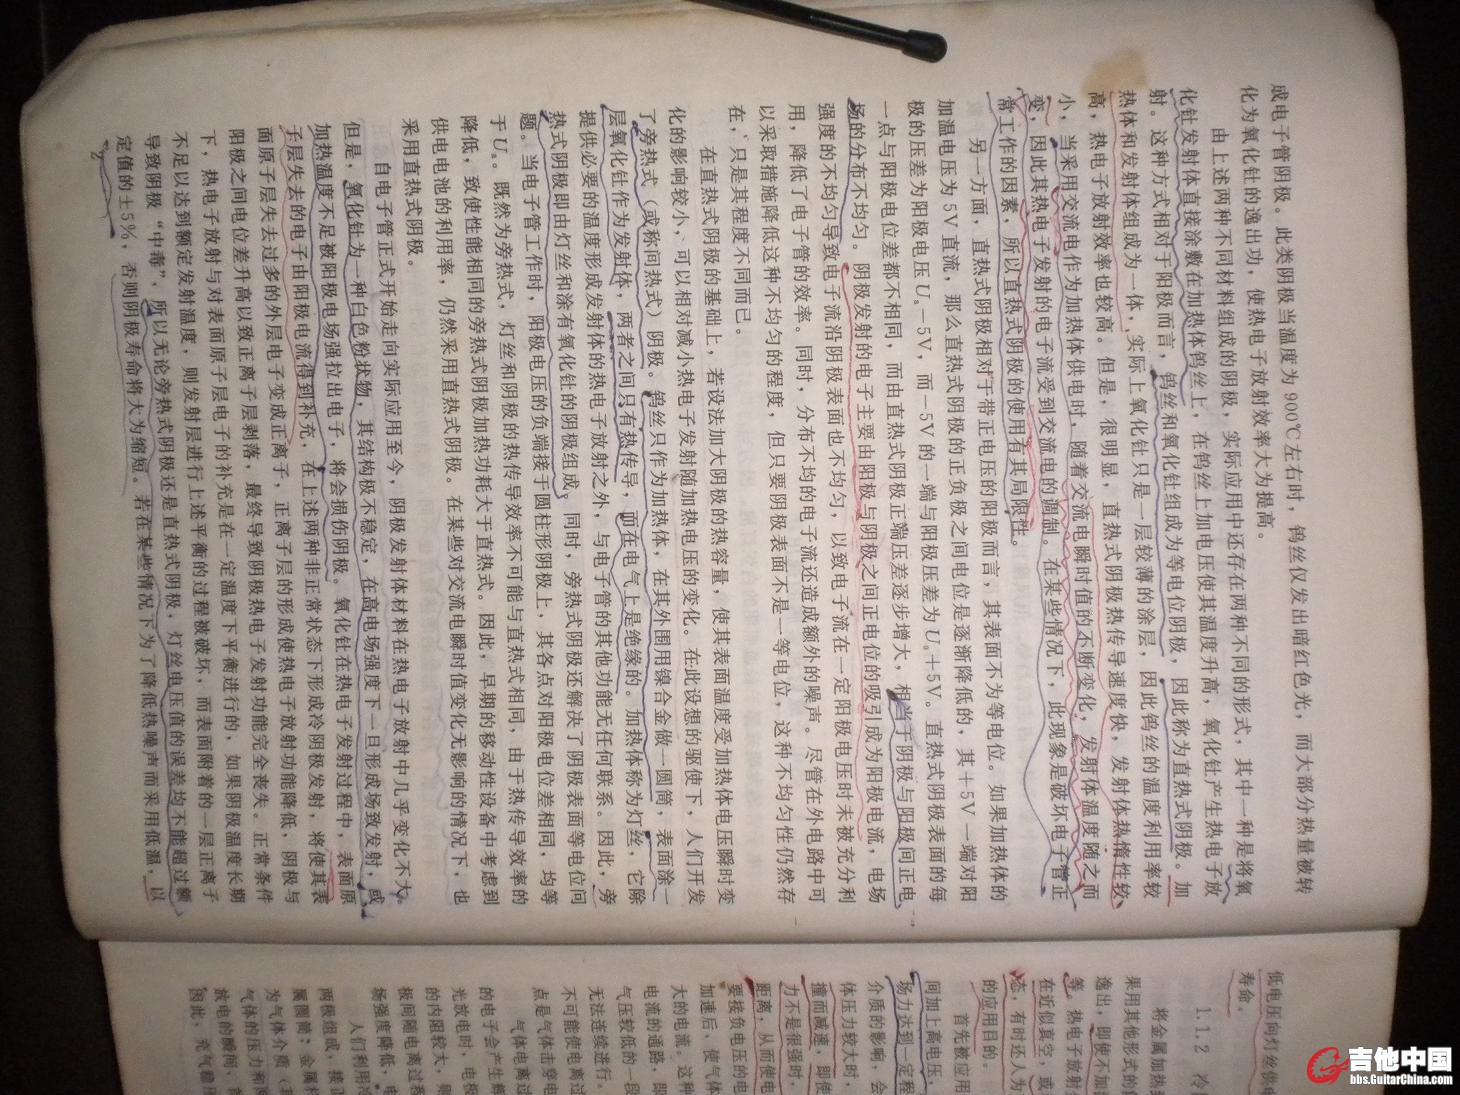 成电子管阴极。此类阴极当温度为900℃左右时，钨丝仅发出暗红色光，而大部分热量被转
化为氧化钍的逸出功，使热电子放射效率大为提高。
由上述两种不同材料组成的阴极，实际应用中还存在两种不同的形式，其中一种是将氧
化钍发射体直接涂敷在加热体钨丝上，在钨丝上加电压使其温度升高，氧化钍产生热电子放
射。这种方式相对于阳极而言，钨丝和氧化钍组成为等电位阴极，因此称为直热式阴极。加
热体和发射体组成为一体，实际上氧化钍只是一层较薄的涂层，因此钨丝的温度利用率较
高，热电子放射效率也较高。但是，很明显，直热式阴极热传导速度快，发射体热惰性较
小，当采用交流电作为加热体供电时，随着交流电瞬时值的不断变化，发射体温度随之而
变，因此其热电子发射的电子流受到交流电的调制。在某些情况下，此现象是破坏电子管正
常工作的因素，所以直热式阴极的使用有其局限性。
另一方面，直热式阴极相对于带正电压的阳极而言，其表面不为等电位。如果加热体的
加温电压为5V直流，那么直热式阴极的正负极之间电位是逐渐降低的，其＋5V一端对阳
极的压差为阳极电压Uₐ－5V，而－5V的一端与阳极压差为Uₐ＋5V。直热式阴极表面的每
一点与阳极电位差都不相同，而由直热式阴极正端压差逐步增大，相当于阴极与阳极间正电
场的分布不均匀。阴极发射的电子主要由阳极与阴极之间正电位的吸引成为阳极电流，电场
强度的不均匀导致电子流沿阴极表面也不均匀，以致电子流在一定阳极电压时未被充分利
用，降低了电子管的效率。同时，分布不均的电子流还造成额外的噪声。尽管在外电路中可
以采取措施降低这种不均匀的程度，但只要阴极表面不是一等电位，这种不均匀性仍然存
在，只是其程度不同而已。
在直热式阴极的基础上，若设法加大阴极的热容量，使其表面温度受加热体电压瞬时变
化的影响较小，可以相对减小热电子发射随加热电压的变化。在此设想的驱使下，人们开发
了旁热式（或称间热式）阴极。钨丝只作为加热体，在其外围用镍合金做一圆筒，表面涂一
层氧化钍作为发射体，两者之间只有热传导，而在电气上是绝缘的。加热体称为灯丝，它除
提供必要的温度形成发射体的热电子放射之外，与电子管的其他功能无任何联系。因此，旁
热式阴极即由灯丝和涂有氧化钍的阴极组成。同时，旁热式阴极还解决了阴极表面等电位问
题。当电子管工作时，阳极电压的负端接于圆柱形阴极上，其各点对阳极电位差相同，均等
于Uₐ。既然为旁热式，灯丝和阴极的热传导效率不可能与直热式相同，由于热传导效率的
降低，致使性能相同的旁热式阴极加热功耗大于直热式。因此，早期的移动性设备中考虑到
供电电池的利用率，仍然采用直热式阴极。在某些对交流电瞬时值变化无影响的情况下，也
采用直热式阴极。
自电子管正式开始走向实际应用至今，阴极发射体材料在热电子放射中几乎变化不大，
但是，氧化钍为一种白色粉状物，其结构极不稳定，在高电场强度下一旦形成场致发射，或
加热温度不足被阳极电场强拉出电子，将会损伤阴极。氧化钍在热电子发射过程中，表面原
子层失去的电子由阳极电流得到补充，在上述两种非正常状态下形成冷阴极发射，将使其表
面原子层失去过多的外层电子变成正离子，正离子层的形成使热电子放射功能降低，阴极与
阳极之间电位差升高以致正离子层剥落，最终导致阴极热电子发射功能完全丧失。正常条件
下，热电子放射与对表面原子层电子的补充是在一定温度下平衡进行的，如果阴极温度长期
不足以达到额定发射温度，则发射层进行上述平衡的过程被破坏，而表面附着的一层正离子
导致阴极“中毒”，所以无论旁热式阴极还是直热式阴极，灯丝电压值的误差均不能超过额
定值的±5％，否则阴极寿命将大为缩短。若在某些情况下为了降低热噪声而采用低温，以
2
低电压向灯丝供
寿命。
1.1.2 冷
将金属加热到
果用其他形式的
逸出，即使不加
等。热电子放射
在近似真空，或
态，有时还人为
的应用目的。
首先被应用
间加上高电压，
场力达到一定程
介质的影响，会
体压力较大时，
撞而减速，即使
力不是很强时，
距离，从而使电
要接负电压的电
加速后，使气体
大的电流。这种
电流的通路，即
气压较低的一段
无法连续进行。
不可能使电离过
点是气体击穿电
气体电离过
的电子会产生
光放电时，电极
的内阻较大，则
极间随电离过程
场强度降低，电
人们利用
两极组成，接
属圆筒；金属
为气体介质（
气体的压力和
放电的瞬间，
因此，充气稳
吉他中国
bbs.GuitarChina.com